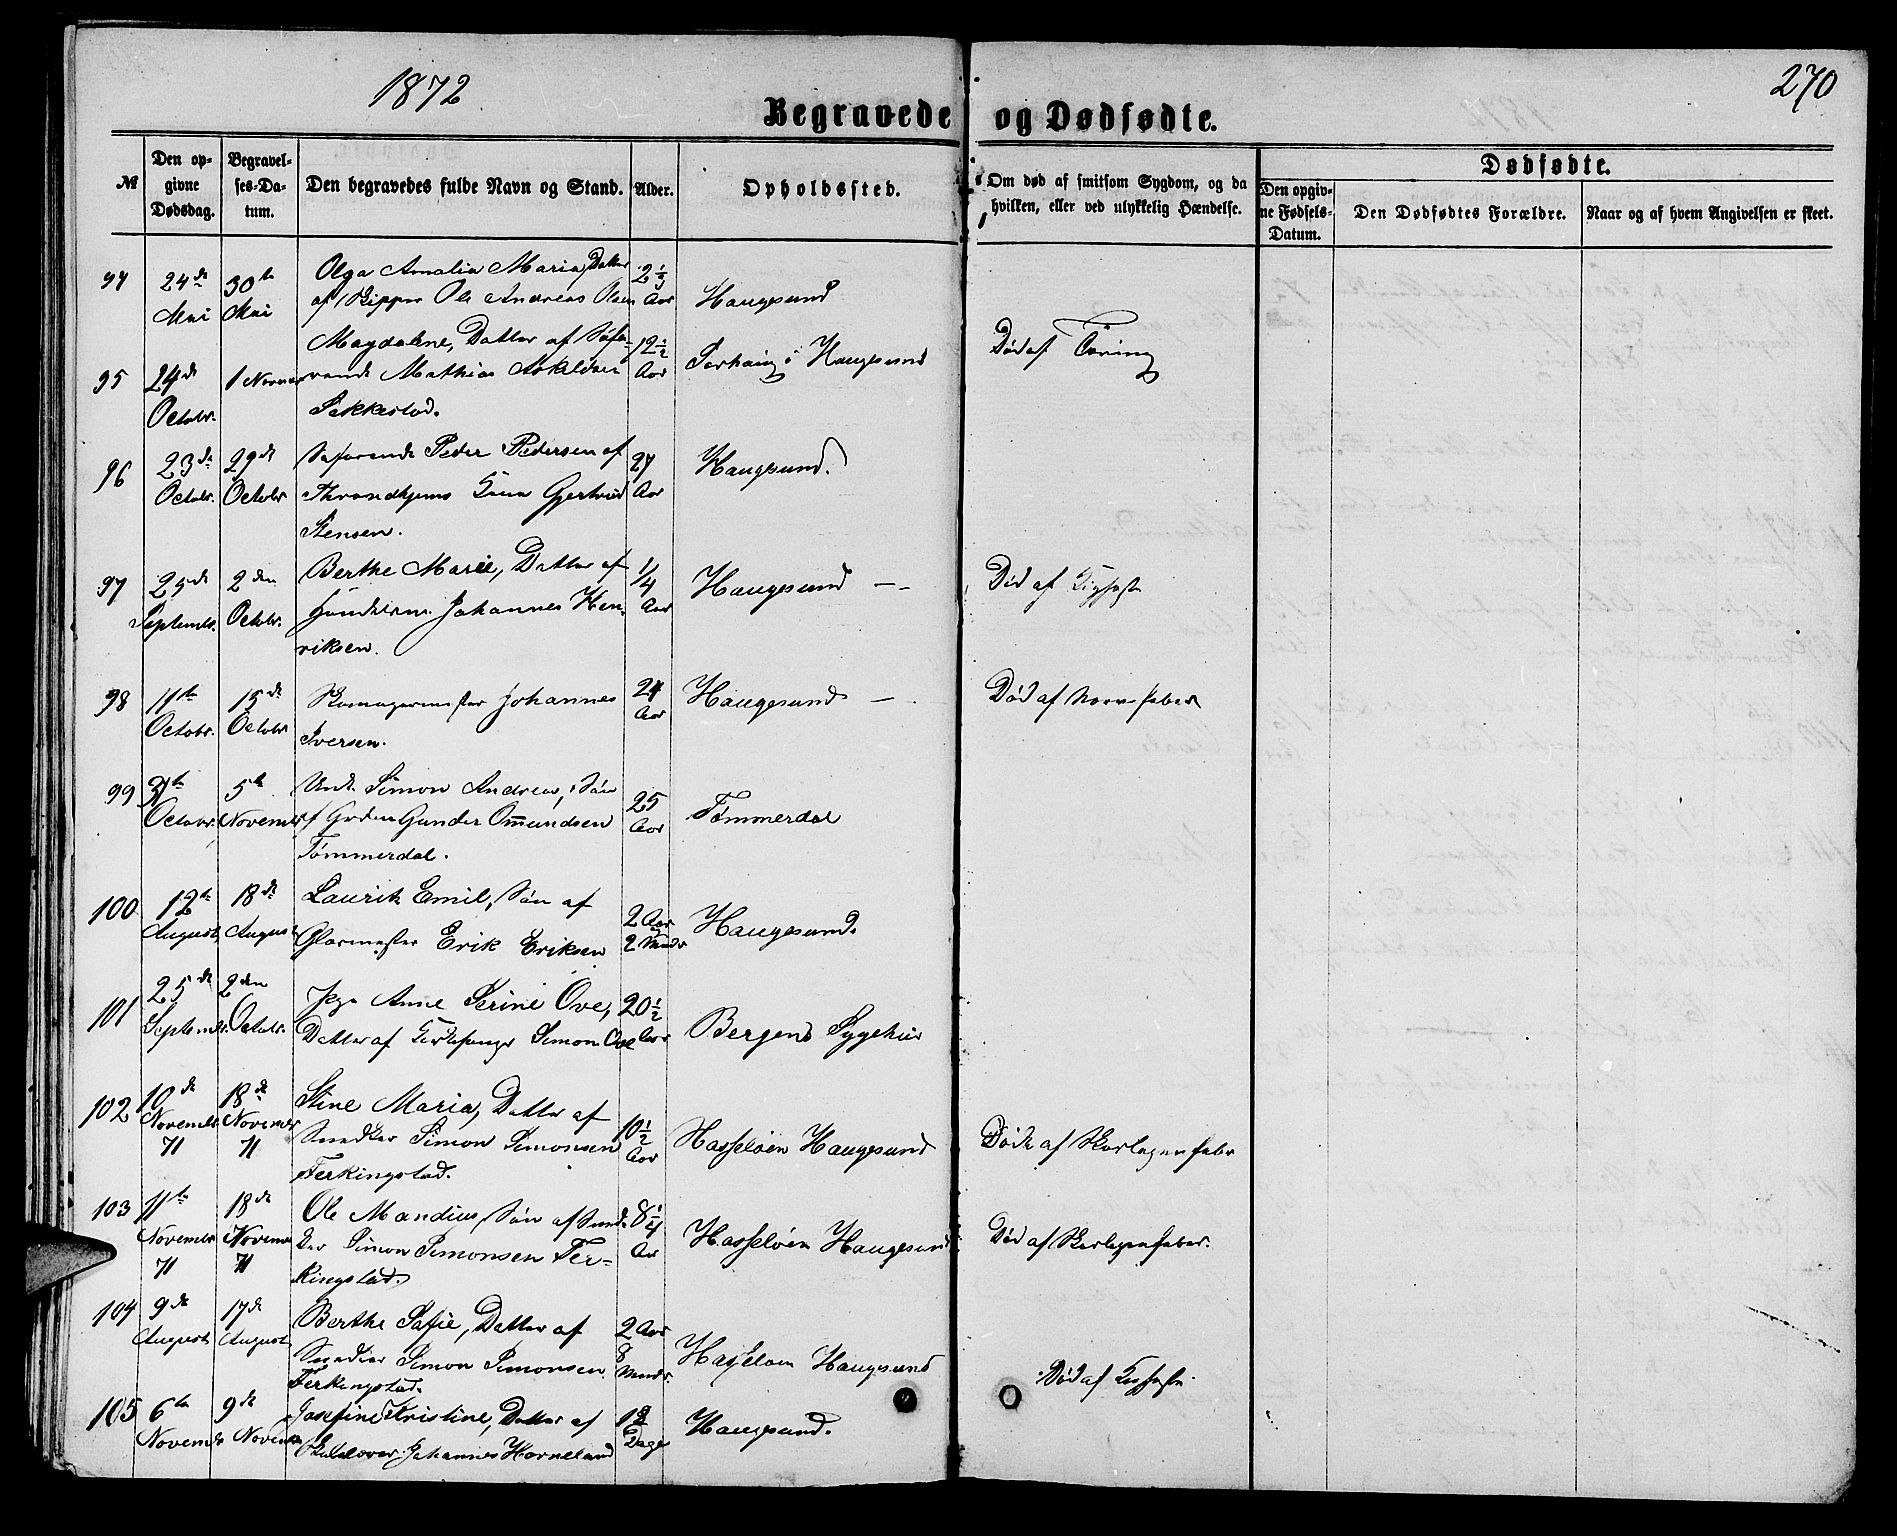 1872
270
Begravede og Dødfødte.
№
Den op-
givne
Dødsdag.
Begravel-
ses-Da-
tum.
Den begravedes fulde Navn og Stand.
Alder.
Opholdssted.
Om død af smitsom Sygdom, og da
hvilken, eller ved ulykkelig Hændelse.
Dødfødte.
Den opgiv-
ne Fødsels-
Datum.
Den Dødfødtes Forældre.
Naar og af hvem Angivelsen er skeet.
94 24de Mai 30te Mai
Olga Amalia Maria, Datter
af Skipper Ole Andreas Olsen
2 1/3 Aar
Haugesund
95 24de Octobr. 1 Novemr
Magdalene, Datter af Søfa-
rende Mathias Askildsen
Sakkestad.
12 1/2 Aar
i Haugesund
Død af Tæring
96 23de Octobr. 29de Octobr
Søfarende Peder Pedersen af
Throndhjems Gjertrud
Stensen.
27 Aar
Haugesund.
97 25de Septembr. 2den Octobr.
Berthe Marie, Datter af
Johannes Hen-
riksen.
1/4 Aar
Haugesund —
Død af Kighoste
98 11te Octobr. 15de Octobr
Skomagermester Johannes
Iversen.
24 Aar
Haugesund —
Død af Nervefeber
99 31te Octobr. 5te November
Andreas, Søn
af Gunder Omundsen
Tømmerdal.
25 Aar
Tømmerdal
100 12te August 18de August
Laurits Emil, Søn af
Glarmester Erik Eriksen
2 Aar
2 Maaneder
Haugesund.
101 25de Septembr. 2den Octobr.
Pige Anne Serine Ove,
Datter af Simon Ove
20 1/2 Aar
Bergens Sygehus
102 10de Novembr 71 18de Novembr 71
Stine Maria, Datter af
Snedker Simon Simonsen
Ferkingstad.
10 1/2 Aar
Hasseløen Haugesund
Døde af Skarlagensfeber
103 11te Novembr 71 18de Novembr 71
Ole Mandius, Søn af Sned-
ker Simon Simonsen Fer-
kingstad.
8 1/4 Aar
Hasseløen Haugesund
Død af Skarlagensfeber.
104 9de August 17de August
Berthe Sofie, Datter af
Snedker Simon Simonsen
Ferkingstad.
2 Aar
8 Maaneder
Hasseløen Haugesund
Død af Kighoste.
105 6te Novembr 9de Novembr
Josefine Kristine, Datter af
Johannes Horneland
Dage
Haugesund.